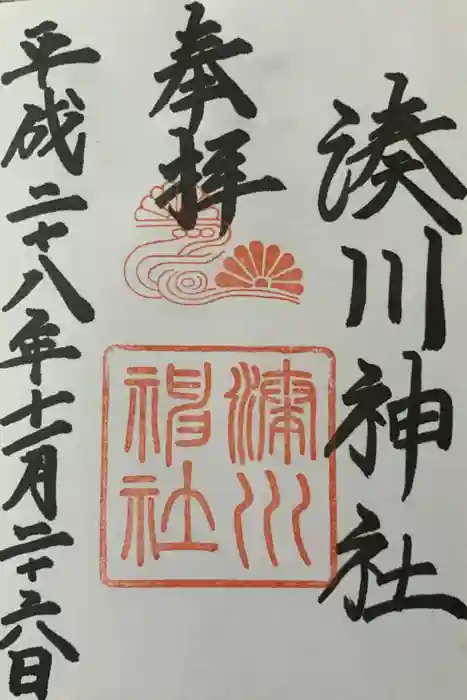 湊川神社
奉拝
湊川
神社
平成二十八年十一月二十六日